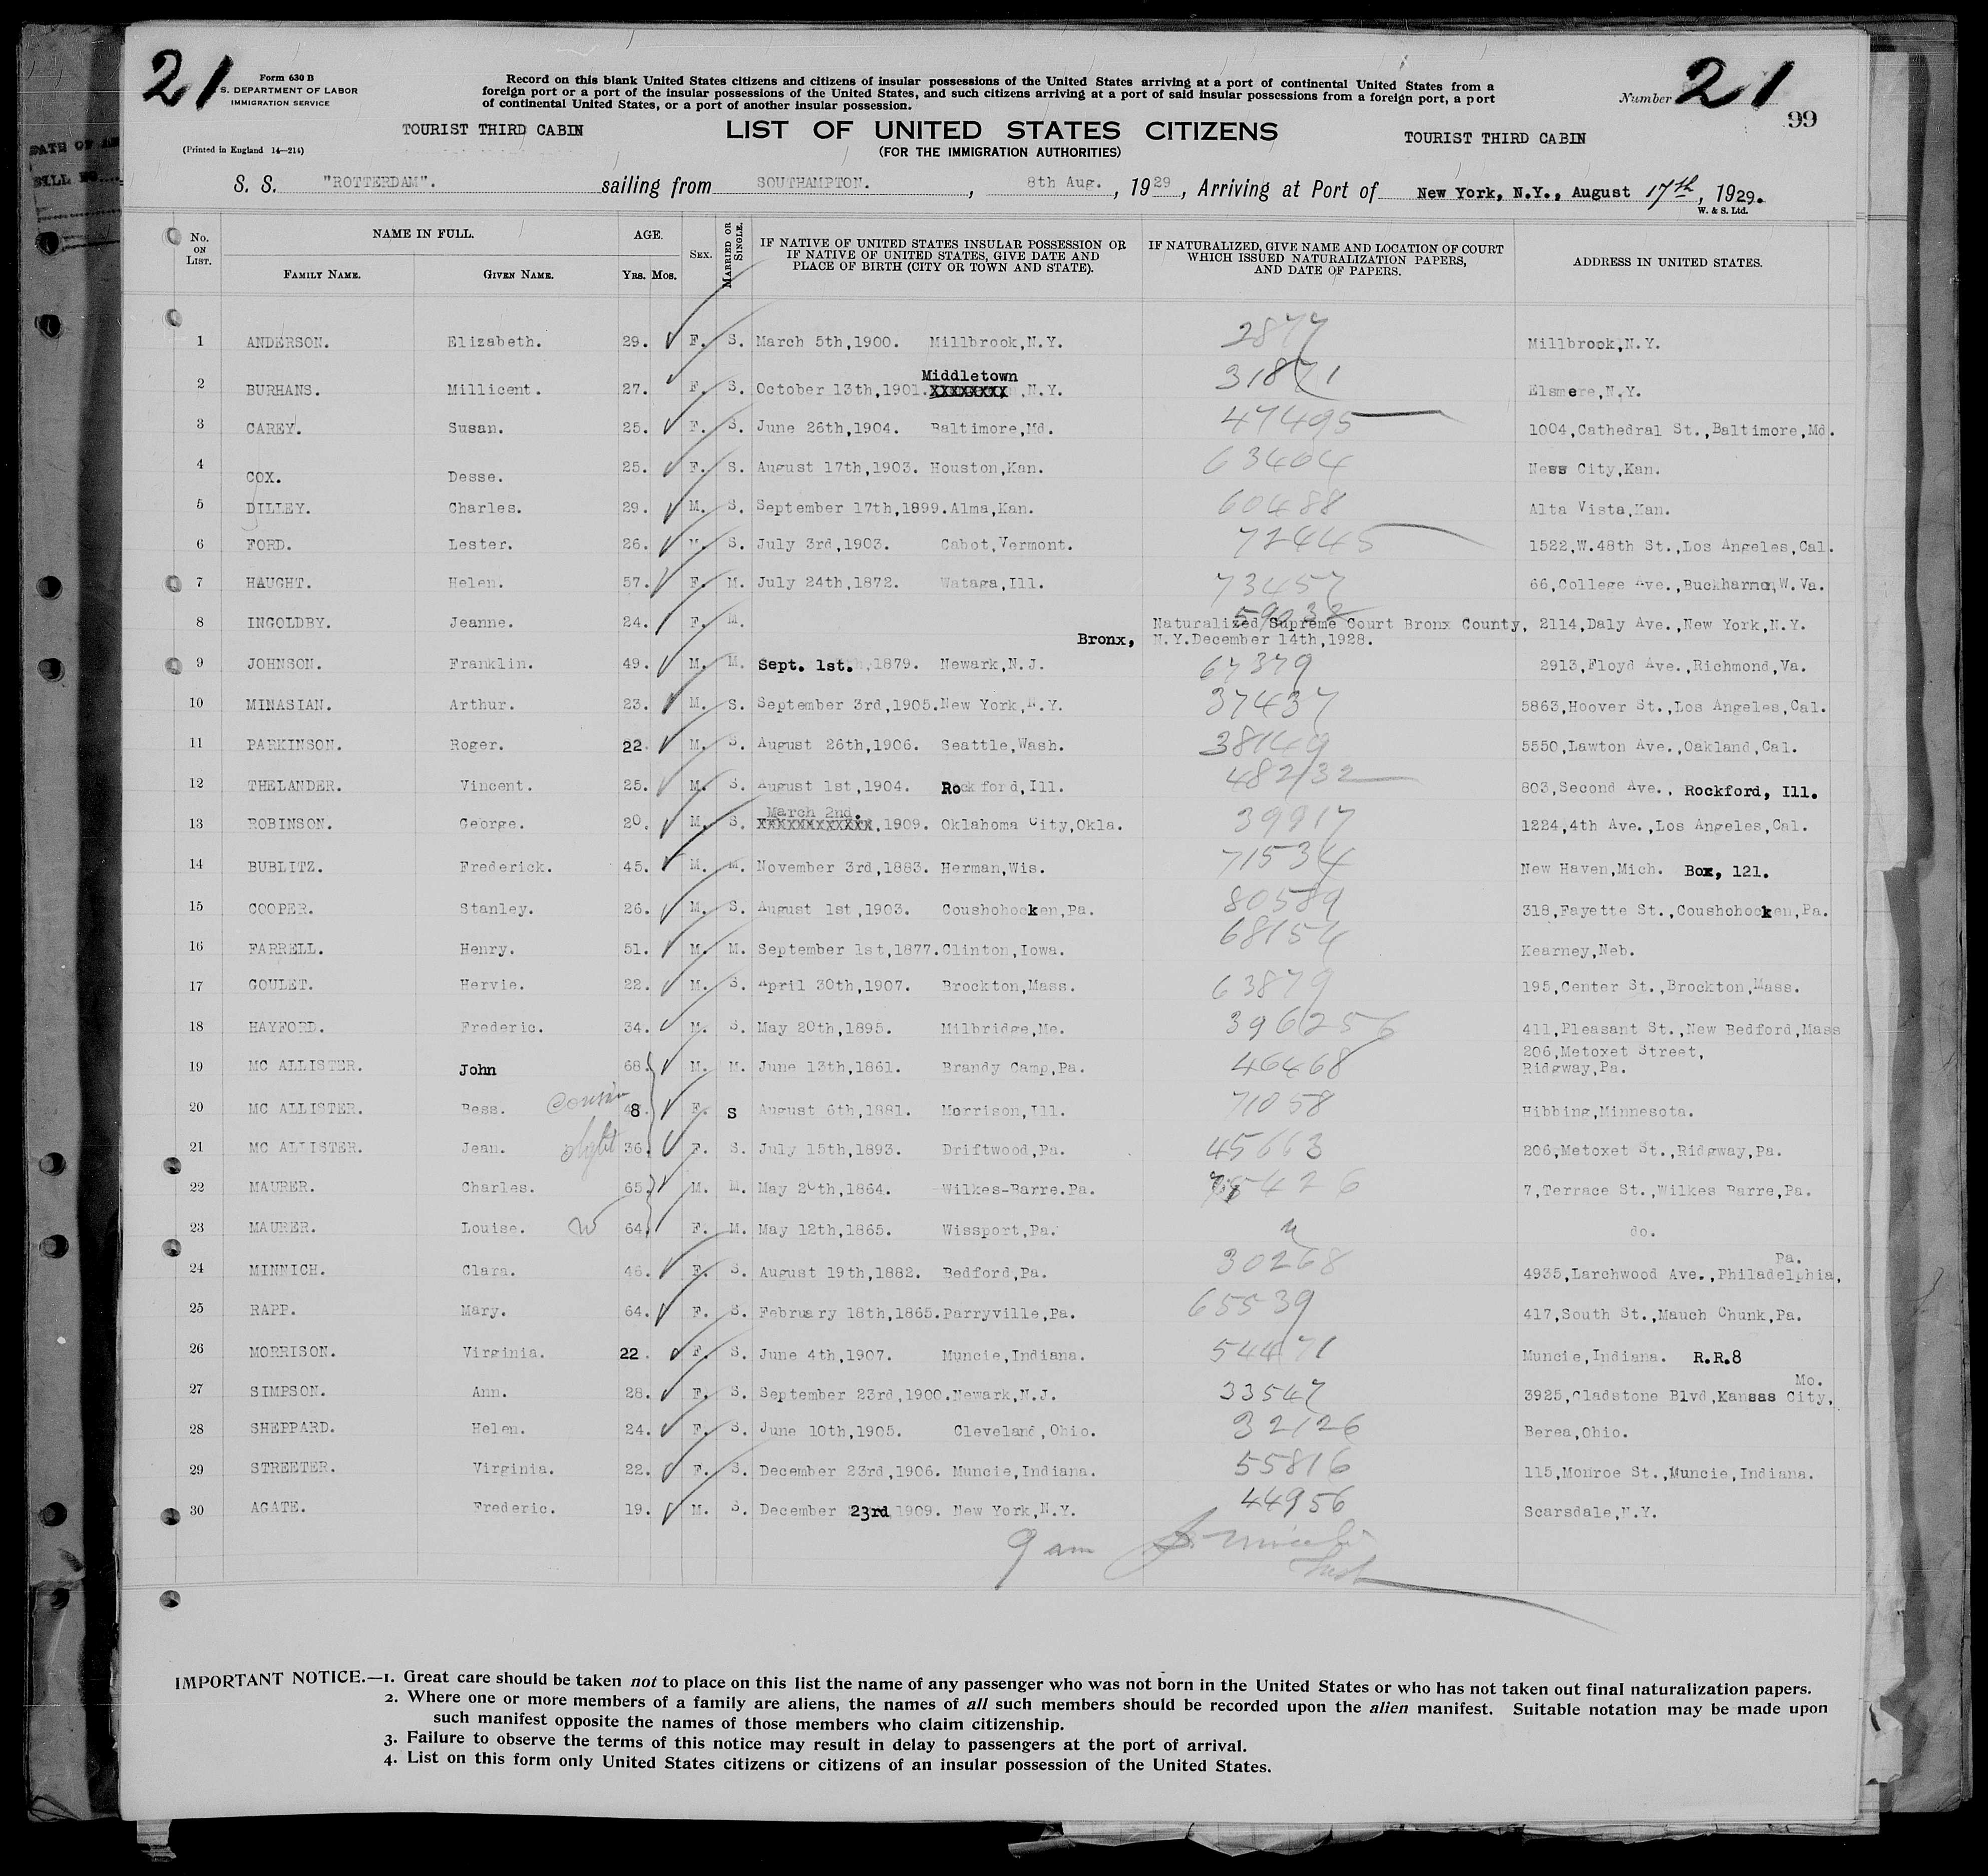 21
Form 630 B
S. DEPARTMENT OF LABOR
IMMIGRATION SERVICE
Record on this blank United States citizens and citizens of insular possessions of the United States arriving at a port of continental United States from a
foreign port or a port of the insular possessions of the United States, and such citizens arriving at a port of said insular possessions from a foreign port, a port
of continental United States, or a port of another insular possession.
Number 21
99
TOURIST THIRD CABIN
LIST OF UNITED STATES CITIZENS
TOURIST THIRD CABIN
(Printed in England 14—214)
(FOR THE IMMIGRATION AUTHORITIES)
S. S. "ROTTERDAM". sailing from SOUTHAMPTON. , 8th Aug. , 1929, Arriving at Port of New York, N.Y., August 17th, 1929.
W. & S. Ltd.
No. ON LIST. NAME IN FULL. FAMILY NAME. GIVEN NAME. AGE. YRS. MOS. SEX. MARRIED OR SINGLE. IF NATIVE OF UNITED STATES INSULAR POSSESSION OR IF NATIVE OF UNITED STATES, GIVE DATE AND PLACE OF BIRTH (CITY OR TOWN AND STATE). IF NATURALIZED, GIVE NAME AND LOCATION OF COURT WHICH ISSUED NATURALIZATION PAPERS, AND DATE OF PAPERS. ADDRESS IN UNITED STATES.
1 ANDERSON. Elizabeth. 29. F. S. March 5th,1900. Millbrook,N.Y. 2877 Millbrook,N.Y.
Middletown
2 BURHANS. Millicent. 27. F. S. October 13th,1901. XXXXXXXX ,N.Y. 31871 Elsmere,N.Y.
3 CAREY. Susan. 25. F. S. June 26th,1904. Baltimore,Md. 47495 1004,Cathedral St.,Baltimore,Md.
4 COX. Desse. 25. F. S. August 17th,1903. Houston,Kan. 63404 Ness City,Kan.
5 DILLEY. Charles. 29. M. S. September 17th,1899. Alma,Kan. 60488 Alta Vista,Kan.
6 FORD. Lester. 26. M. S. July 3rd,1903. Cabot,Vermont. 72445 1522,W.48th St.,Los Angeles,Cal.
7 HAUGHT. Helen. 57. F. M. July 24th,1872. Wataga,Ill. 73457 66,College Ave.,Buckharmon,W.Va.
59038
8 INGOLDBY. Jeanne. 24. F. M. Naturalized Supreme Court Bronx County, 2114,Daly Ave.,New York,N.Y.
Bronx, N.Y.December 14th,1928.
9 JOHNSON. Franklin. 49. M. M. Sept. 1st. ,1879. Newark,N.J. 67379 2913,Floyd Ave.,Richmond,Va.
10 MINASIAN. Arthur. 23. M. S. September 3rd,1905. New York,N.Y. 37437 5863,Hoover St.,Los Angeles,Cal.
11 PARKINSON. Roger. 22. M. S. August 26th,1906. Seattle,Wash. 38149 5550,Lawton Ave.,Oakland,Cal.
12 THELANDER. Vincent. 25. M. S. August 1st,1904. Rockford,Ill. 482132 803,Second Ave., Rockford, Ill.
March 2nd.
13 ROBINSON. George. 20. M. S. XXXXXXXXXXXX,1909. Oklahoma City,Okla. 39917 1224,4th Ave.,Los Angeles,Cal.
14 BUBLITZ. Frederick. 45. M. M. November 3rd,1883. Herman,Wis. 71534 New Haven,Mich. Box, 121.
15 COOPER. Stanley. 26. M. S. August 1st,1903. Coushohocken,Pa. 80589 318,Fayette St.,Coushohocken,Pa.
16 FARRELL. Henry. 51. M. M. September 1st,1877. Clinton,Iowa. 68154 Kearney,Neb.
17 GOULET. Hervie. 22. M. S. April 30th,1907. Brockton,Mass. 63879 195,Center St.,Brockton,Mass.
18 HAYFORD. Frederic. 34. M. S. May 20th,1895. Milbridge,Me. 396256 411,Pleasant St.,New Bedford,Mass
206,Metoxet Street,
19 MC ALLISTER. John 68. M. M. June 13th,1861. Brandy Camp,Pa. 46468 Ridgway,Pa.
20 MC ALLISTER. Bess. cousin 48. F. S August 6th,1881. Morrison,Ill. 71058 Hibbing,Minnesota.
21 MC ALLISTER. Jean. 36. F. S. July 15th,1893. Driftwood,Pa. 45663 206,Metoxet St.,Ridgway,Pa.
22 MAURER. Charles. 65. M. M. May 20th,1864. Wilkes-Barre.Pa. 7,Terrace St.,Wilkes Barre,Pa.
23 MAURER. Louise. W 64. F. M. May 12th,1865. Wissport,Pa. " do.
Pa.
24 MINNICH. Clara. 46. F. S. August 19th,1882. Bedford,Pa. 30268 4935,Larchwood Ave.,Philadelphia,
25 RAPP. Mary. 64. F. S. February 18th,1865. Parryville,Pa. 65539 417,South St.,Mauch Chunk,Pa.
26 MORRISON. Virginia. 22. F. S. June 4th,1907. Muncie,Indiana. 54471 Muncie,Indiana. R.R.8
Mo.
27 SIMPSON. Ann. 28. F. S. September 23rd,1900. Newark,N.J. 33547 3925,Gladstone Blvd,Kansas City,
28 SHEPPARD. Helen. 24. F. S. June 10th,1905. Cleveland,Ohio. 32126 Berea,Ohio.
29 STREETER. Virginia. 22. F. S. December 23rd,1906. Muncie,Indiana. 55816 115,Monroe St.,Muncie,Indiana.
30 AGATE. Frederic. 19. M. S. December 23rd,1909. New York,N.Y. 44956 Scarsdale,N.Y.
9 am
IMPORTANT NOTICE.—1. Great care should be taken not to place on this list the name of any passenger who was not born in the United States or who has not taken out final naturalization papers.
2. Where one or more members of a family are aliens, the names of all such members should be recorded upon the alien manifest. Suitable notation may be made upon
such manifest opposite the names of those members who claim citizenship.
3. Failure to observe the terms of this notice may result in delay to passengers at the port of arrival.
4. List on this form only United States citizens or citizens of an insular possession of the United States.